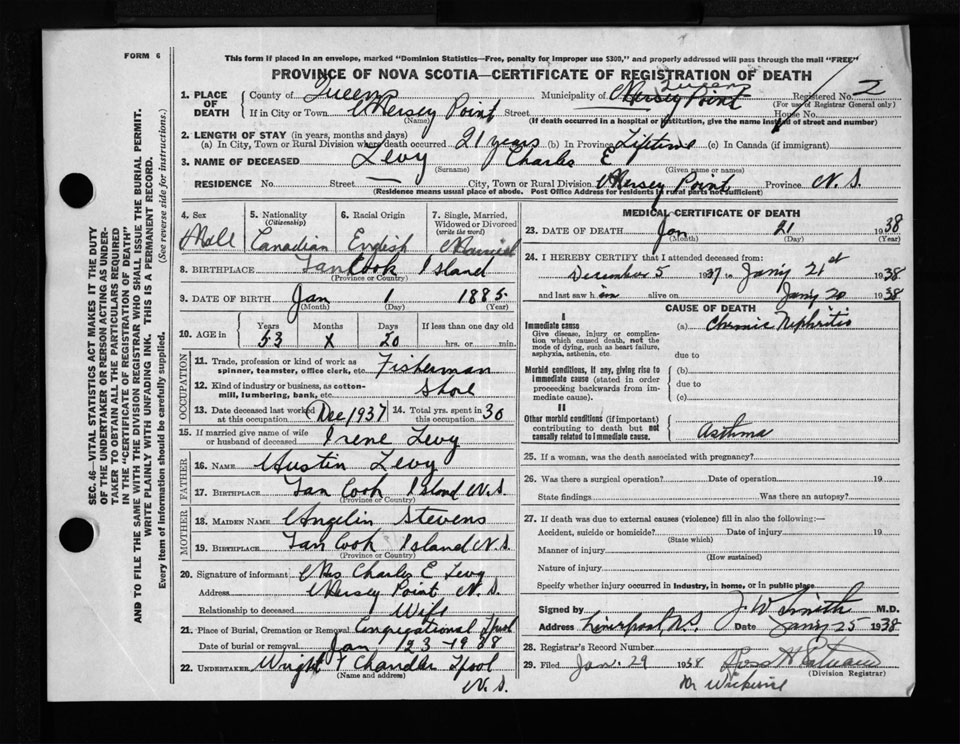 FORM 6
This form if placed in an envelope, marked "Dominion Statistics—Free, penalty for improper use $300," and properly addressed will pass through the mail "FREE"
PROVINCE OF NOVA SCOTIA—CERTIFICATE OF REGISTRATION OF DEATH
SEC. 46—VITAL STATISTICS ACT MAKES IT THE DUTY
OF THE UNDERTAKER OR PERSON ACTING AS UNDER-
TAKER TO OBTAIN ALL THE PARTICULARS REQUIRED
IN THE "CERTIFICATE OF REGISTRATION OF DEATH"
AND TO FILE THE SAME WITH THE DIVISION REGISTRAR WHO SHALL ISSUE THE BURIAL PERMIT.
WRITE PLAINLY WITH UNFADING INK. THIS IS A PERMANENT RECORD.
Every item of information should be carefully supplied. (See reverse side for instructions.)
1. PLACE OF DEATH
County of Queens Municipality of Queens Mersey Point Registered No. 2
(For use of Registrar General only)
If in City or Town Mersey Point Street House No.
(Name) (If death occurred in a hospital or institution, give the name instead of street and number)
2. LENGTH OF STAY (in years, months and days)
(a) In City, Town or Rural Division where death occurred 21 years (b) In Province Lifetime (c) In Canada (if immigrant)
3. NAME OF DECEASED Levy Charles E
(Surname) (Given name or names)
RESIDENCE No. Street — City, Town or Rural Division Mersey Point Province N.S.
(Residence means usual place of abode. Post Office Address for residents in rural parts not sufficient)
4. Sex Male
5. Nationality (Citizenship) Canadian
6. Racial Origin English
7. Single, Married, Widowed or Divorced (write the word) Married
8. BIRTHPLACE Tancook Island
(Province or Country)
9. DATE OF BIRTH Jan 1 1885
(Month) (Day) (Year)
10. AGE in Years 53 Months X Days 20 If less than one day old hrs. or min.
OCCUPATION
11. Trade, profession or kind of work as spinner, teamster, office clerk, etc. Fisherman
12. Kind of industry or business, as cotton-mill, lumbering, bank, etc. Shore
13. Date deceased last worked at this occupation Dec 1937
14. Total yrs. spent in this occupation 30
15. If married give name of wife or husband of deceased Irene Levy
FATHER
16. NAME Austin Levy
17. BIRTHPLACE Tan Cook Island N.S.
(Province or Country)
MOTHER
18. MAIDEN NAME Angelin Stevens
19. BIRTHPLACE Tan Cook Island N.S.
(Province or Country)
20. Signature of informant Mrs Charles E Levy
Address Mersey Point N.S.
Relationship to deceased Wife
21. Place of Burial, Cremation or Removal Congregational
Date of burial or removal Jan 23 - 1938
22. UNDERTAKER Wright & Chandler Lpool
(Name and address)
N.S.
MEDICAL CERTIFICATE OF DEATH
23. DATE OF DEATH Jan 21 1938
(Month) (Day) (Year)
24. I HEREBY CERTIFY that I attended deceased from:
December 5 1937 to Janry 21st 1938
and last saw him alive on Janry 20 1938
CAUSE OF DEATH
I
Immediate cause
Give disease, injury or complication which caused death, not the mode of dying, such as heart failure, asphyxia, asthenia, etc.
(a) Chronic Nephritis
due to
Morbid conditions, if any, giving rise to immediate cause (stated in order proceeding backwards from immediate cause).
(b)
due to
(c)
II
Other morbid conditions (if important) contributing to death but not causally related to immediate cause.
Asthma
25. If a woman, was the death associated with pregnancy?
26. Was there a surgical operation? Date of operation 19
State findings Was there an autopsy?
27. If death was due to external causes (violence) fill in also the following:—
Accident, suicide or homicide? Date of injury 19
(State which)
Manner of injury
(How sustained)
Nature of injury
Specify whether injury occurred in industry, in home, or in public place
Signed by J. W. Smith M.D.
Address Liverpool, N.S. Date Janry 25 1938
28. Registrar's Record Number
29. Filed Jan. 29 1938
(Division Registrar)